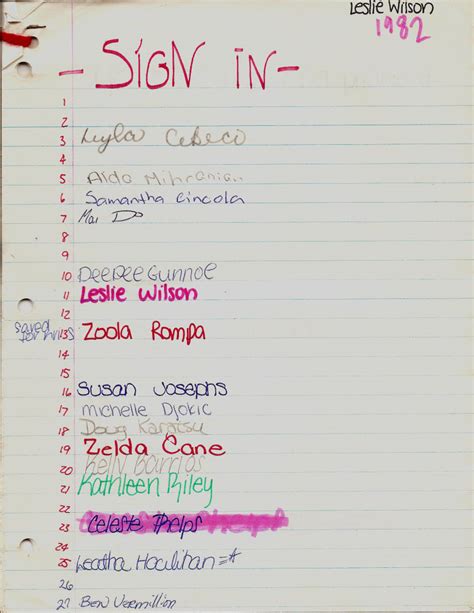 Leslie Wilson
1982
- SIGN IN -
1
2
3 Leyla Cebeco
4
5 Aida Mihranian
6 Samantha Cincola
7 Mai Do
8
9
10 DeeDee Gunnoe
11 Leslie Wilson
12
saved for
13 Zoola Rompa
14
15
16 Susan Josephs
17 Michelle Djokic
18 Doug
19 Zelda Cane
20 Kelly Barrios
21 Kathleen Riley
22
23 Celeste Phelps
24
25 Leatha Houlihan
26
27 Ben Vermillion